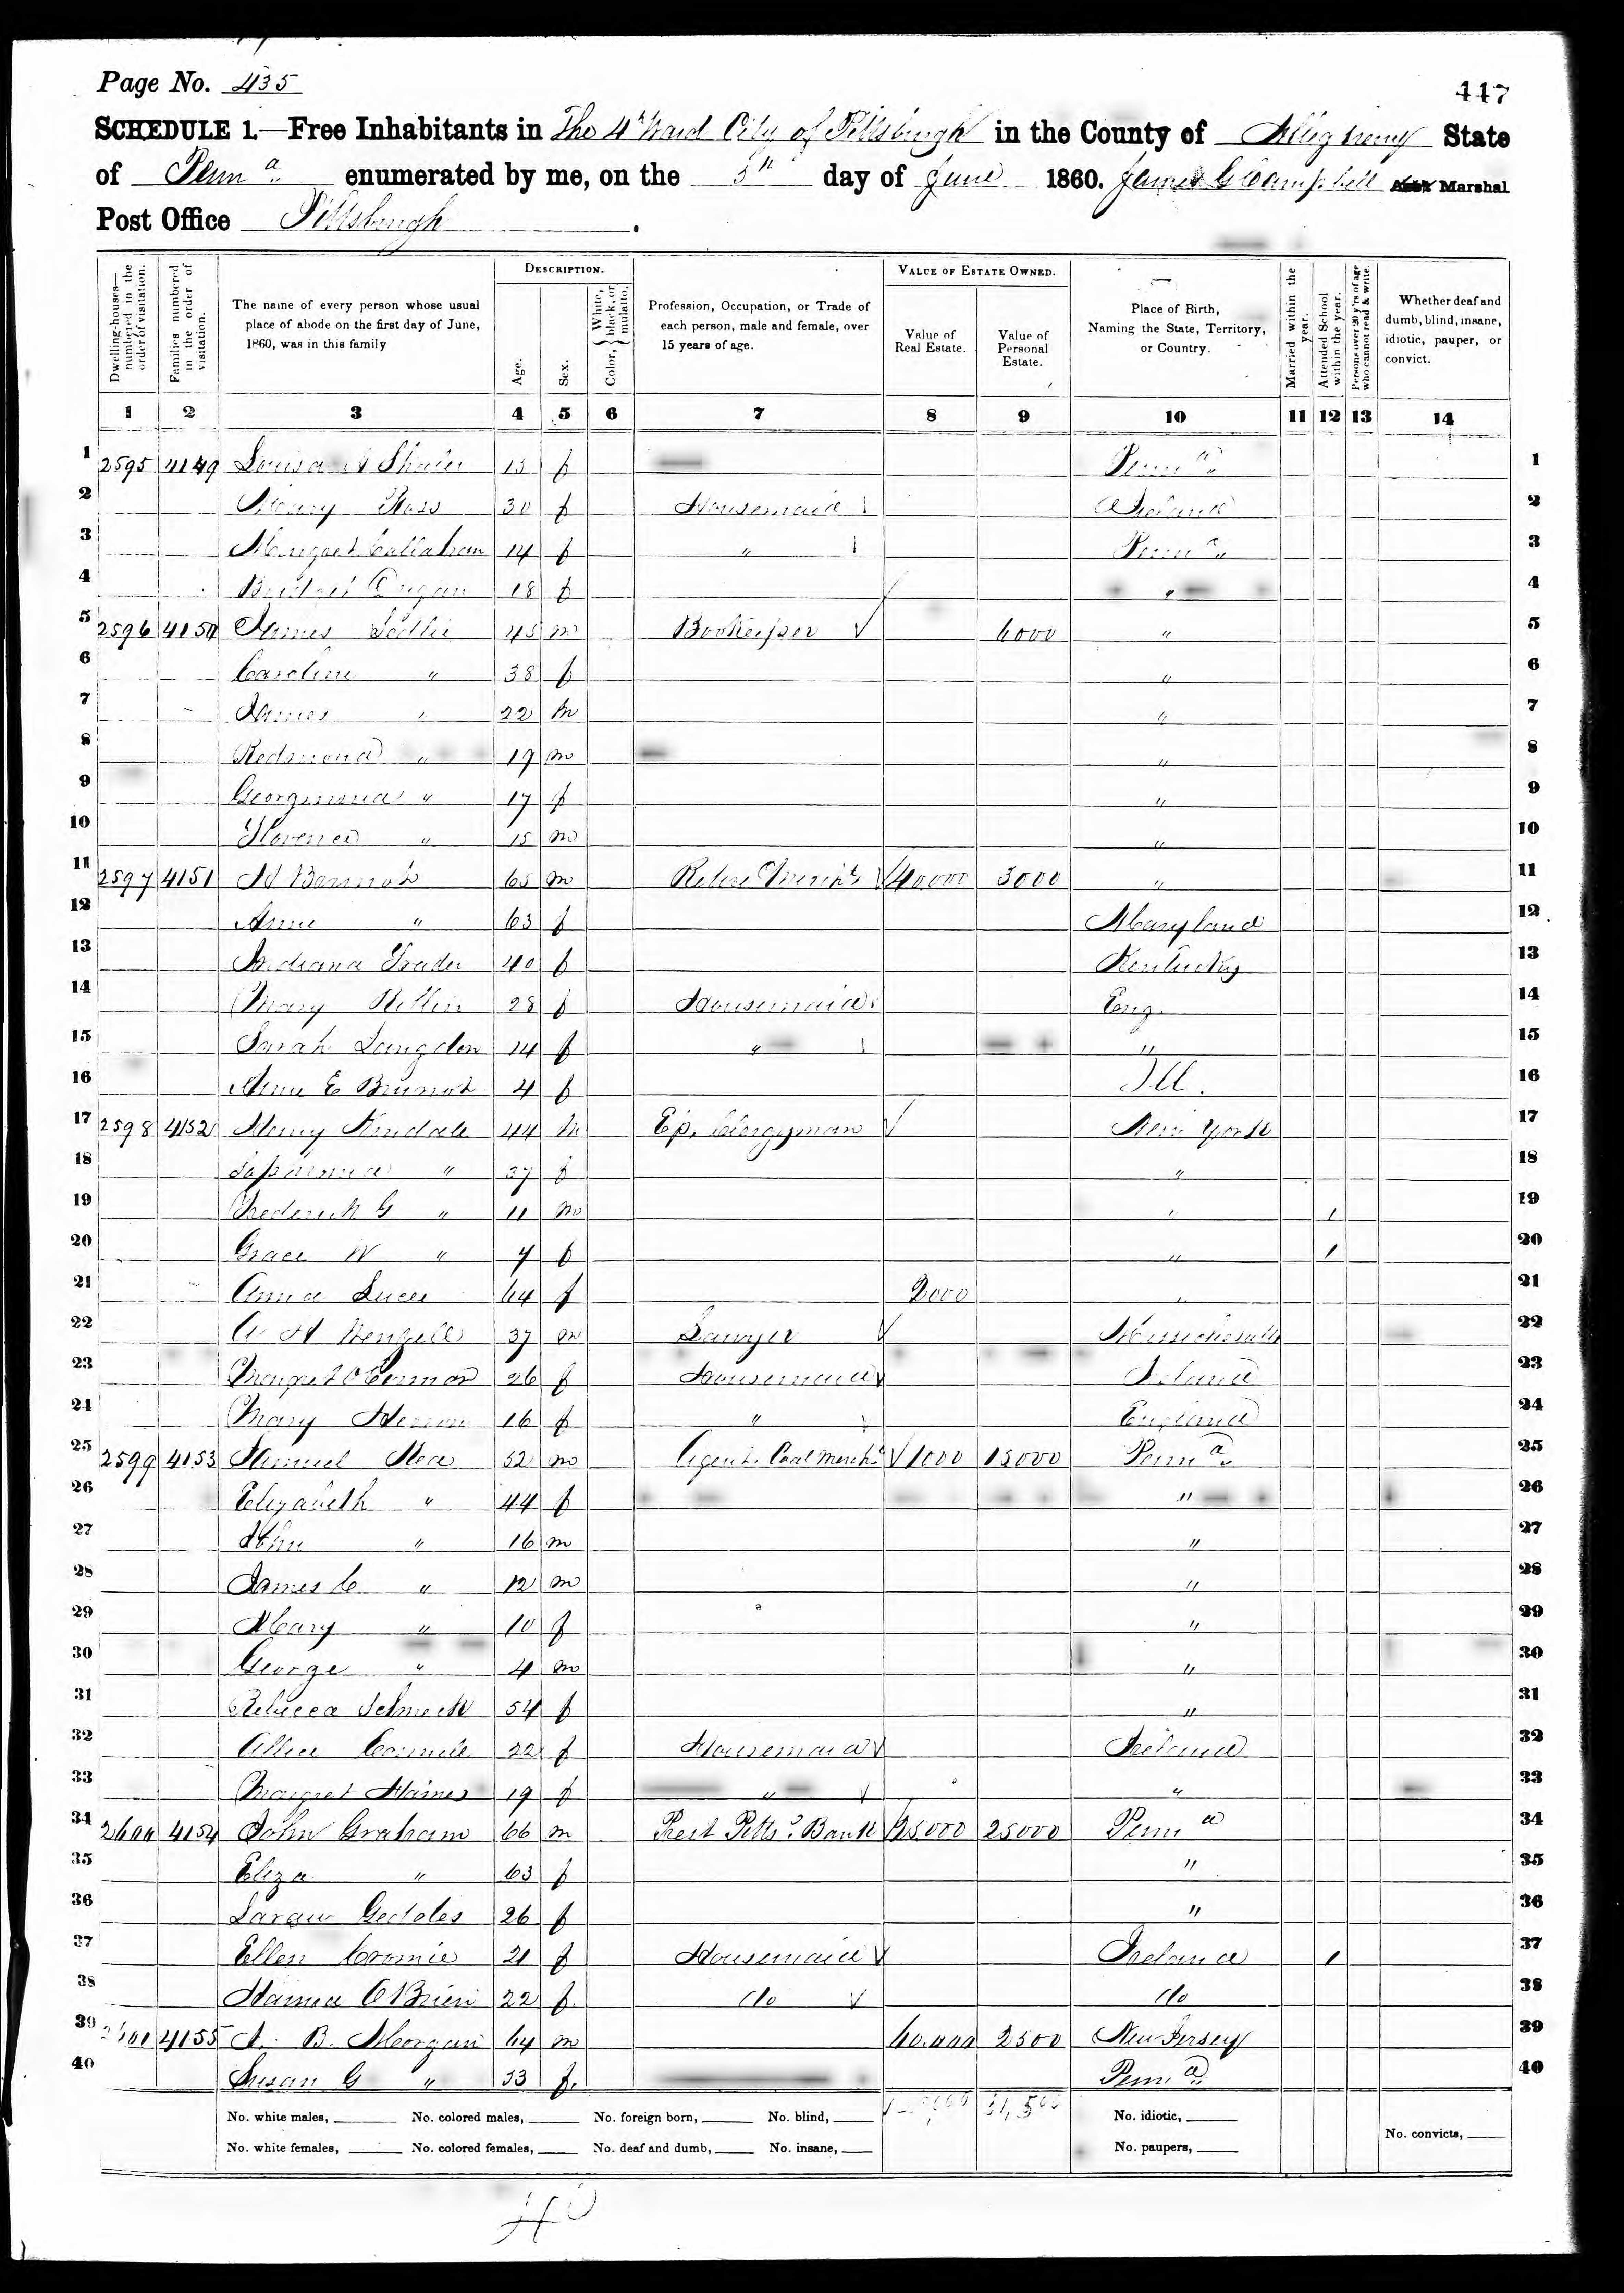 Page No. 435
447
SCHEDULE 1.—Free Inhabitants in The 4th Ward City of Pittsburgh in the County of Allegheny State
of Penna enumerated by me, on the 5th day of June 1860. James C Campbell Asst Marshal
Post Office Pittsburgh.
Dwelling-houses—numbered in the order of visitation.
Families numbered in the order of visitation.
The name of every person whose usual place of abode on the first day of June, 1860, was in this family
DESCRIPTION.
Age.
Sex.
Color, { White, black, or mulatto.
Profession, Occupation, or Trade of each person, male and female, over 15 years of age.
VALUE OF ESTATE OWNED.
Value of Real Estate.
Value of Personal Estate.
Place of Birth, Naming the State, Territory, or Country.
Married within the year.
Attended School within the year.
Persons over 20 y'rs of age who cannot read & write.
Whether deaf and dumb, blind, insane, idiotic, pauper, or convict.
1 2 3 4 5 6 7 8 9 10 11 12 13 14
1 2595 4149 Louisa A 13 f Penna 1
2 Mary Ross 30 f Housemaid Ireland 2
3 Margret Callahan 14 f " Penna 3
4 Bridget Dugan 18 f " 4
5 2596 4150 James 45 m Bookeeper 6000 " 5
6 Caroline " 38 f " 6
7 James " 22 m " 7
8 Redmond " 19 m " 8
9 Georgiana " 17 f " 9
10 Florence " 15 m " 10
11 2597 4151 65 m Retire Mercht 40000 3000 " 11
12 Anne " 63 f Maryland 12
13 Indiana 40 f Kentucky 13
14 Mary 28 f Housemaid Eng. 14
15 Sarah Langdon 14 f " " 15
16 Anna E Brunot 4 f Ill. 16
17 2598 4152 44 m Ep. Clergyman New York 17
18 " 37 f " 18
19 Frederick G " 11 m " 1 19
20 Grace W " 7 f " 1 20
21 Anna 64 f 2000 " 21
22 37 m Lawyer 22
23 Margret O Connor 26 f Housemaid Ireland 23
24 Mary 16 f " England 24
25 2599 4153 Samuel Rea 52 m Agent. Coal Mercht 1000 15000 Penna 25
26 Elizabeth " 44 f " 26
27 John " 16 m " 27
28 James C " 12 m " 28
29 Mary " 10 f " 29
30 George " 4 m " 30
31 Rebecca 54 f " 31
32 22 f Housemaid Ireland 32
33 Margret Haines 19 f " " 33
34 2600 4154 John Graham 66 m Prest Pitts. Bank 25000 Penna 34
35 Eliza " 63 f " 35
36 26 f " 36
37 Ellen Cromie 21 f Housemaid Ireland 1 37
38 Hanna O Brien 22 f. do do 38
39 2601 4155 A. B. Morgan 64 m 60.000 2500 New Jersey 39
40 Susan G " 53 f. Penna 40
No. white males, No. colored males, No. foreign born, No. blind, 51,500 No. idiotic,
No. white females, No. colored females, No. deaf and dumb, No. insane, No. paupers, No. convicts,
40